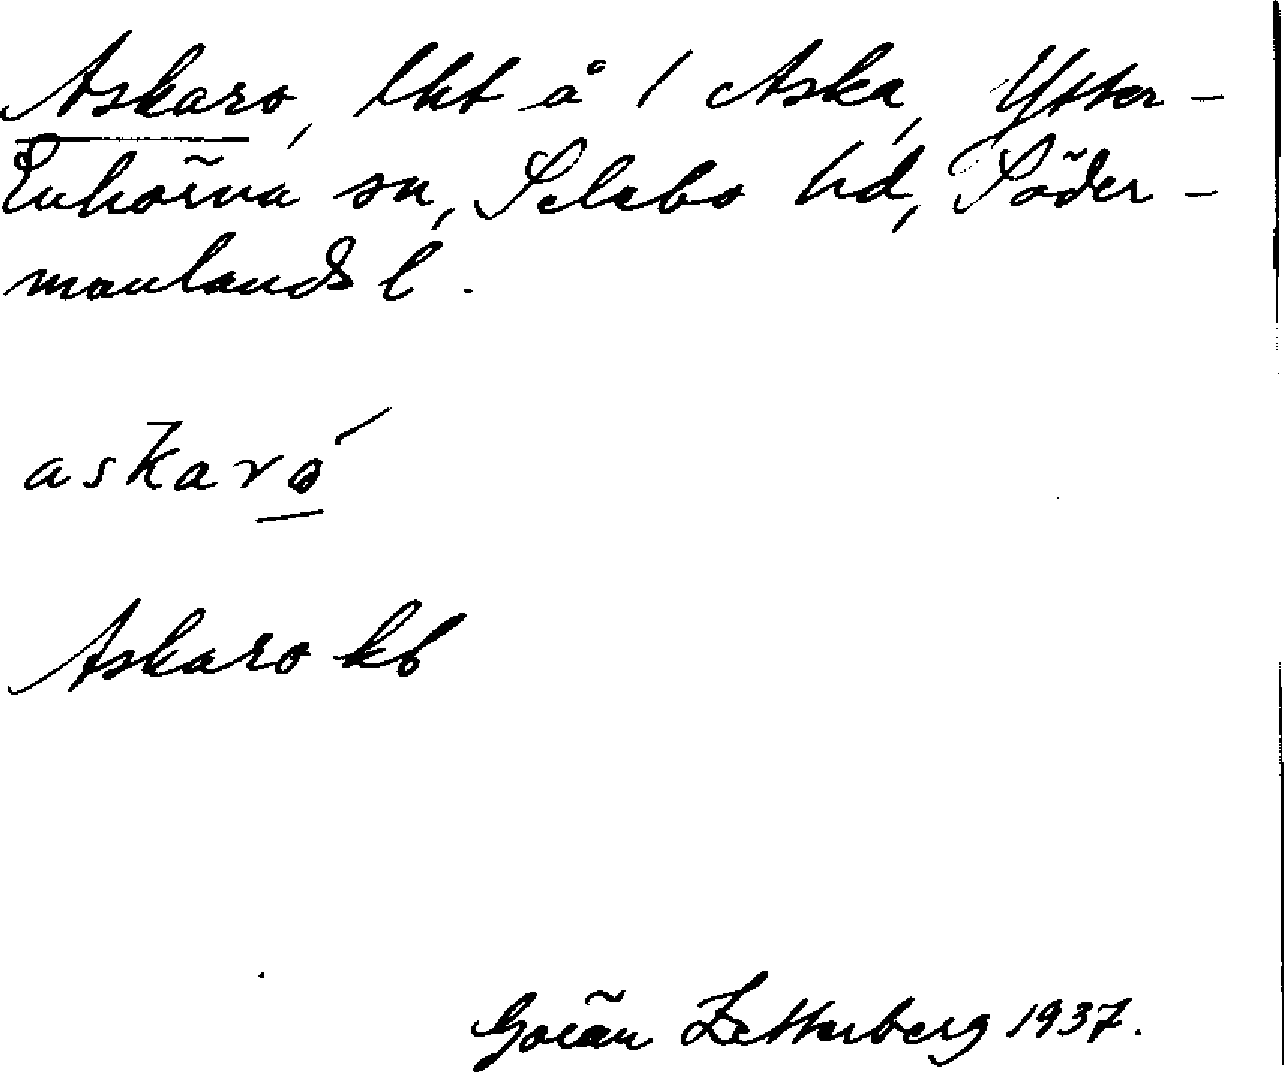 Askaro, lht å 1 Aska, Ytter-
Enhörna sn, Selebo hd, Söder-
manlands l.
askaró
Askaro kb
Göran Zetterberg 1937.